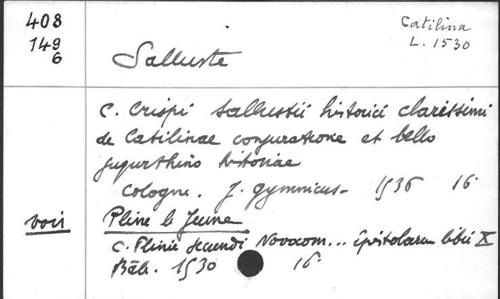 408
149
6
Catilina
L. 1530
Salluste
C. Crispi Sallustii historici clarissimi
de Catilinae conjuratione et bello
jugurthino historiae
Cologne. J. gymnicus - 1536 16°
voir Pline le Jeune
C. Plinii secundi Novocom... epistolarum libri X
Bâle. 1530 16°